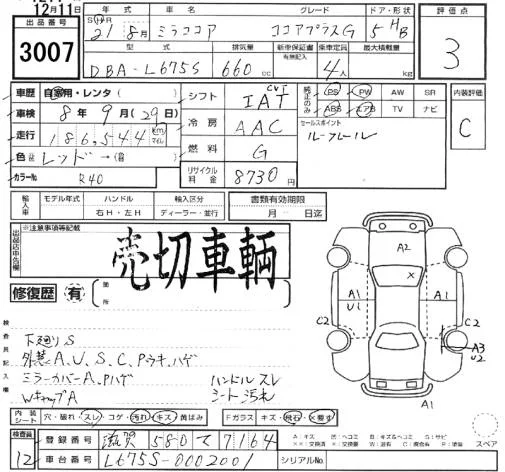 12月11日
出品番号
3007
年式 車名 グレード ドア・形状
S H R 21年 8月 ミラココア ココアプラスG 5 H/B
型式 排気量 新車保証書 有無記入 乗車定員 最大積載量
DBA-L675S 660 cc 4人 kg
評価点
3
車歴 自家用・レンタ
車検 8年 9月 (29日)
走行 186,544 km マイル
色 レッド →
カラーNo R40
シフト CVT IAT
冷房 AAC
燃料 G
リサイクル料金 8730円
純正のみ PS PW AW SR
ABS エアB TV ナビ
セールスポイント
ルーフレール
内装評価
C
輸入車 モデル年式 ハンドル 輸入区分 書類有効期限
年 右H・左H ディーラー・並行 月 日迄
出品店申告欄
※注意事項等記載
売切車輌
修復歴 有 箇所
検査員記入欄
下廻りS
外装A、U、S、C、Pウキ、ハゲ
ミラーカバーA、Pハゲ
WキャップA
ハンドルスレ
シート汚れ
A2
A1
U1
A1
C2
C2
A3
U2
A1
内装シート 穴・破れ・スレ コゲ・汚れ・キズ 黄ばみ Fガラス キズ・飛石・X要す
スペア
検査員 12
登録番号 滋賀 580 て 7164
車台番号 L675S-0002001 シリアルNo